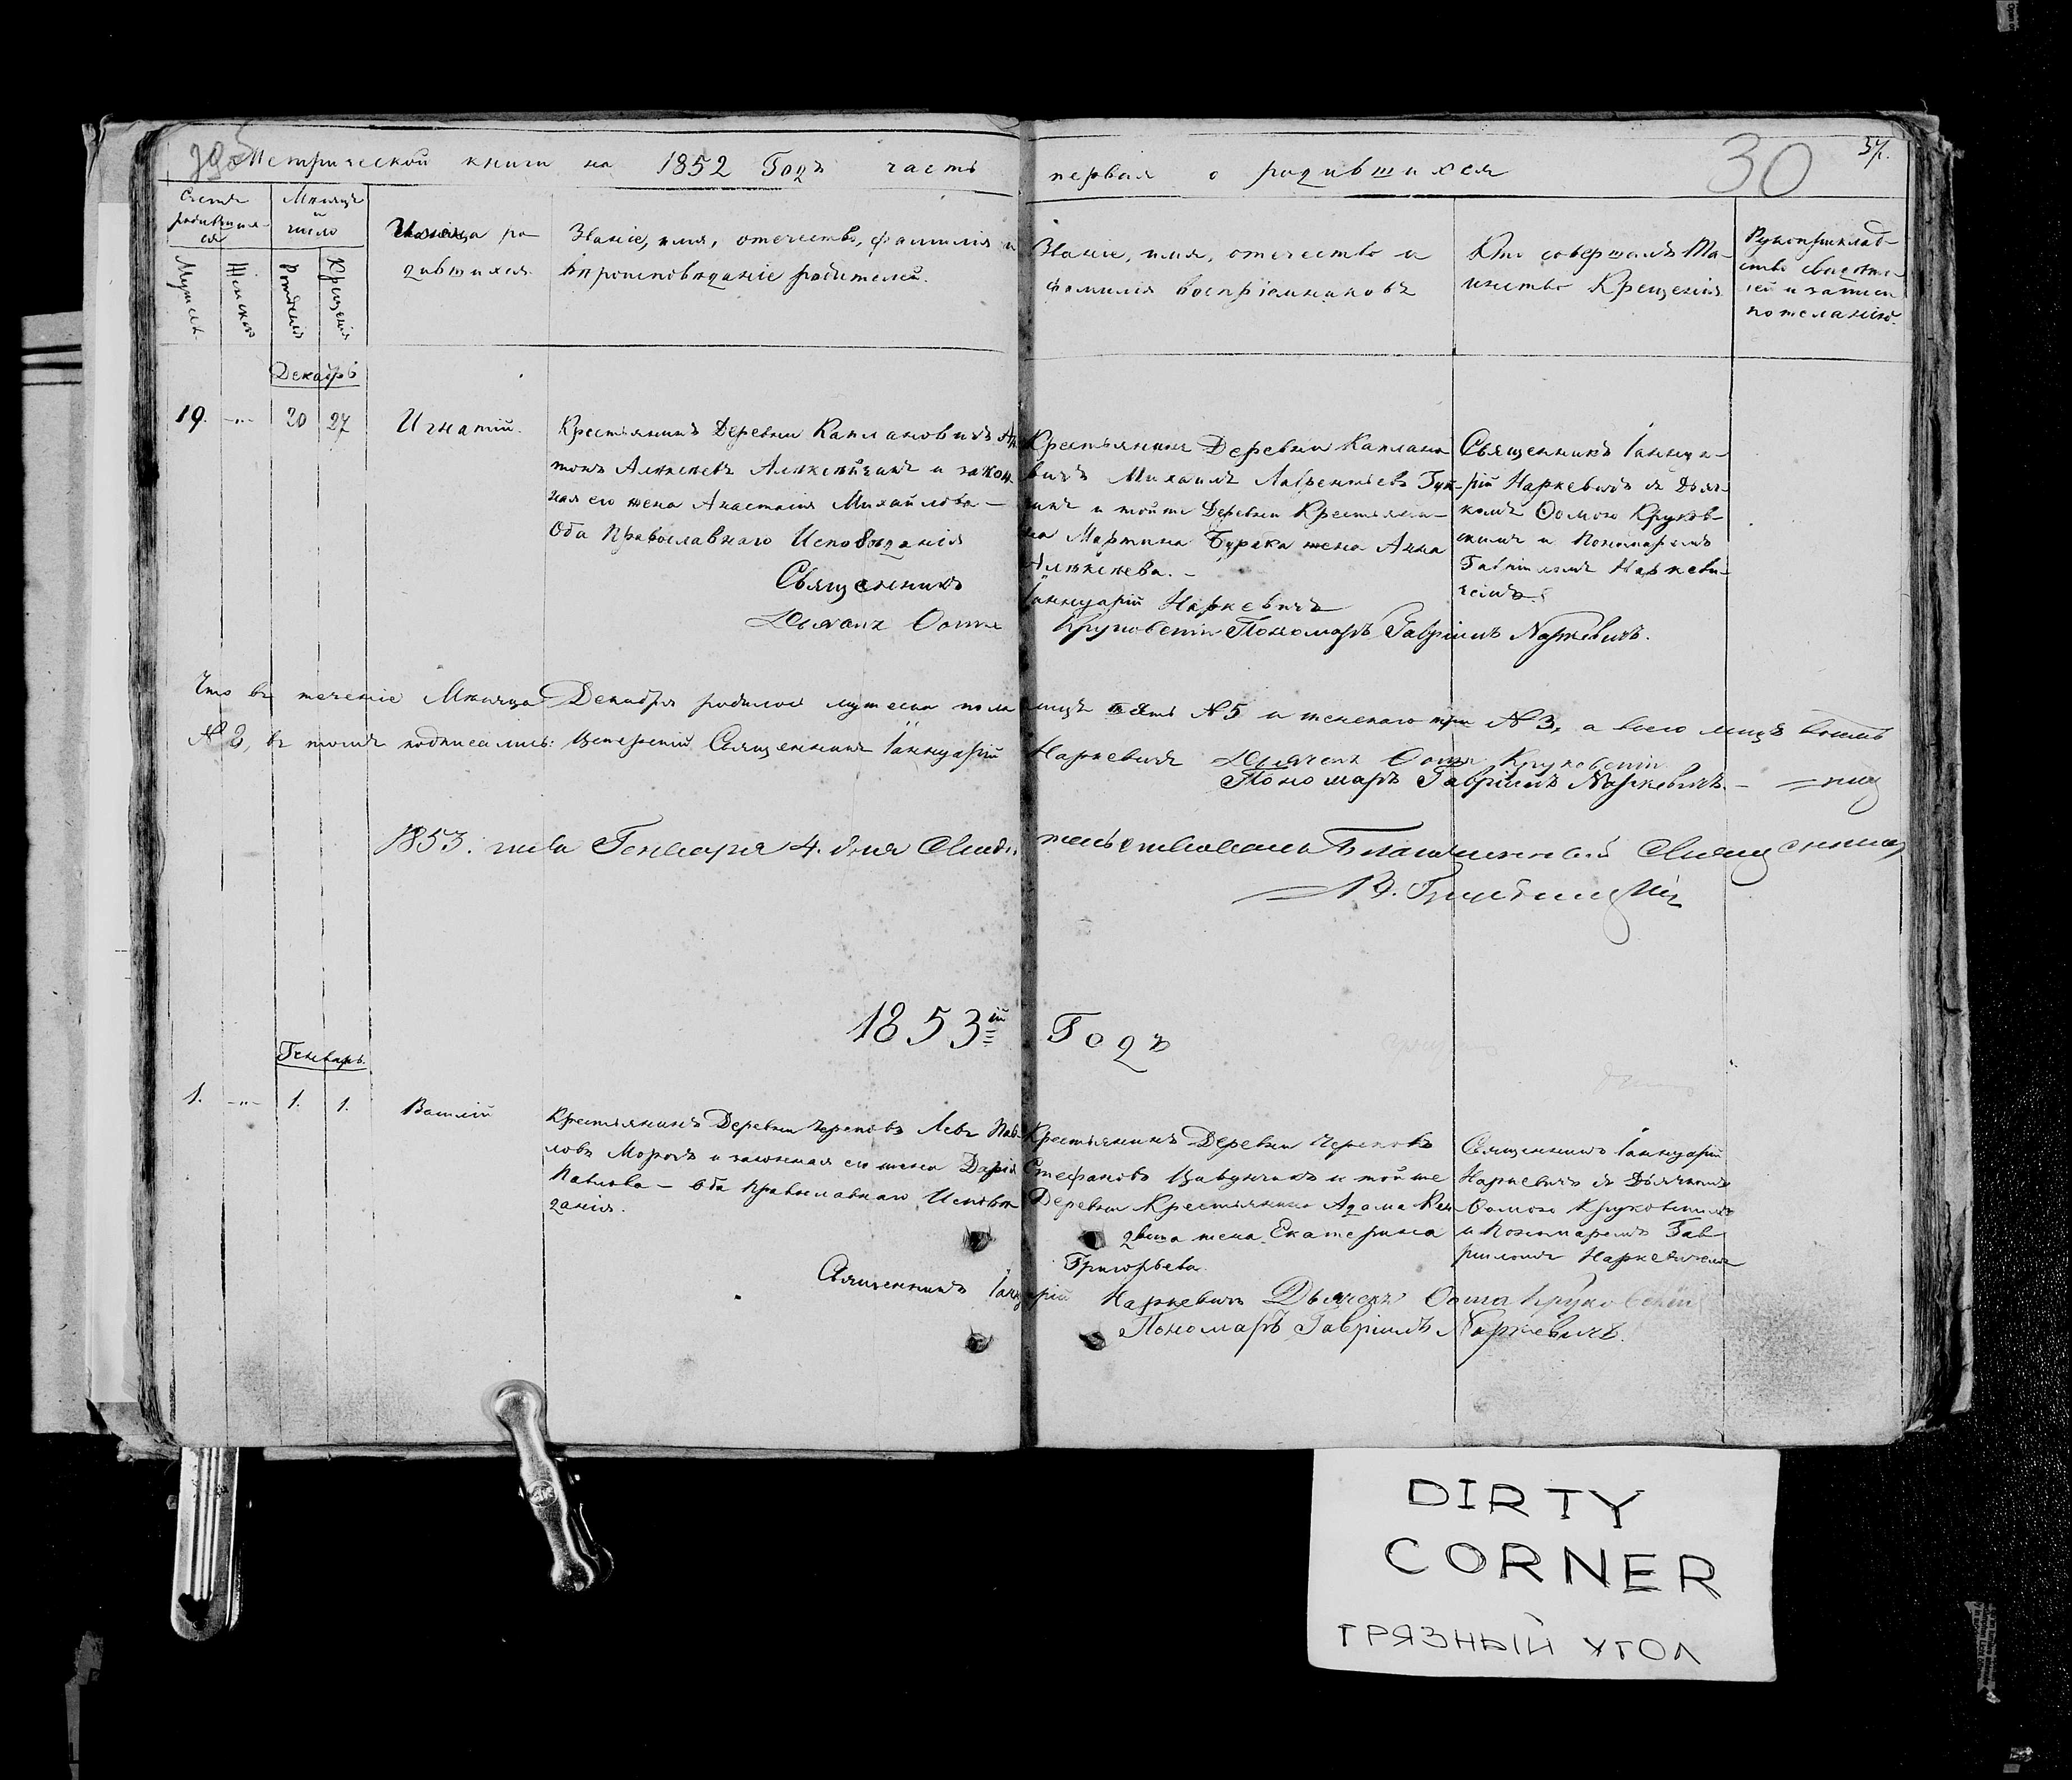 Метрической книги на 1852 Годъ часть первая о родившихся
30
37.
Счетъ родившихся
Мѣсяцъ и число
Мужеск.
Женскаго
Рожденія
Крещенія
Имена ро-
дившихся
Званіе, имя, отечество, фамилія и
вѣроисповѣданіе родителей.
Званіе, имя, отечество и
фамилія воспріемниковъ
Кто совершалъ Та-
инство Крещенія
Рукоприклад-
ство свидѣте-
лей и записи
по желанію.
Декабрь
19. 20 27 Игнатій.
Крестьянинъ Деревни Каплановичъ Ан-
тонъ Алексѣевъ и закон-
ная его жена Анастасія Михайлова —
Оба Православнаго Исповѣданія
Крестьянинъ Деревни Каплано-
вичъ Михаилъ Лаврентьевъ
и тойже Деревни Крестьяни-
на Мартина Бурака жена Анна
Алексѣева. —
Священникъ Іаннуа-
рій Наркевичъ съ Дьяч-
комъ Ѳомою Круков-
скимъ и Пономаремъ
Гавріиломъ Наркеви-
чемъ.
Священникъ Іаннуарій Наркевичъ
Дьячекъ Ѳома Круковскій Пономарь Гавріилъ Наркевичъ.
Что въ теченіе Мѣсяца Декабря родилось мужеска пола лицъ пять №5 и женскаго три №3, а всего лицъ восемь
№8, въ томъ подписались: Священникъ Іаннуарій Наркевичъ Дьячекъ Ѳома Круковскій
Пономарь Гавріилъ Наркевичъ. —
1853. года Генваря 4. дня Свидѣтельствовалъ Благочинный Священникъ
1853ій Годъ
Генварь.
1. 1. 1. Василій
Крестьянинъ Деревни Левъ Пав-
ловъ Морозъ и законная его жена Дарія
Павлова — Оба Православнаго Исповѣ-
данія.
Крестьянинъ Деревни
Стефановъ и тойже
Деревни Крестьянина Адама
жена Екатерина
Григорьева.
Священникъ Іаннуарій
Наркевичъ съ Дьячкомъ
Ѳомою Круковскимъ
и Пономаремъ Гав-
ріиломъ Наркевичемъ
Священникъ Іаннуарій Наркевичъ Дьячекъ Ѳома Круковскій
Пономарь Гавріилъ Наркевичъ.
DIRTY
CORNER
ГРЯЗНЫЙ УГОЛ